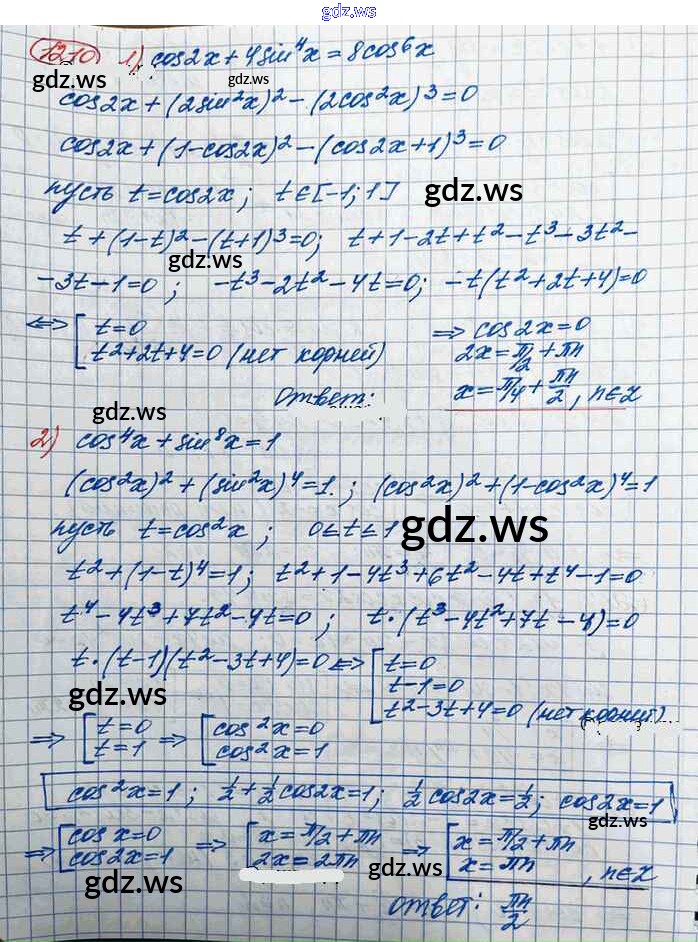 gdz.ws
1210 1) cos2x + 4sin⁴x = 8cos⁶x
gdz.ws gdz.ws
cos2x + (2sin²x)² − (2cos²x)³ = 0
cos2x + (1−cos2x)² − (cos2x+1)³ = 0
пусть t = cos2x; t ∈ [−1; 1]
gdz.ws
t + (1−t)² − (t+1)³ = 0; t + 1 − 2t + t² − t³ − 3t² −
gdz.ws
− 3t − 1 = 0; −t³ − 2t² − 4t = 0; −t(t² + 2t + 4) = 0
⟺ [ t = 0 ⇒ cos2x = 0
t² + 2t + 4 = 0 (нет корней) 2x = π/2 + πn
ответ: x = π/4 + πn/2, n∈Z
gdz.ws
2) cos⁴x + sin⁸x = 1
(cos²x)² + (sin²x)⁴ = 1.; (cos²x)² + (1−cos²x)⁴ = 1
пусть t = cos²x; 0 ≤ t ≤ 1
gdz.ws
t² + (1−t)⁴ = 1; t² + 1 − 4t³ + 6t² − 4t + t⁴ − 1 = 0
t⁴ − 4t³ + 7t² − 4t = 0; t·(t³ − 4t² + 7t − 4) = 0
t·(t−1)(t² − 3t + 4) = 0 ⟺ [ t = 0
t − 1 = 0
t² − 3t + 4 = 0 (нет корней)
gdz.ws
⇒ [ t = 0 ⇒ [ cos²x = 0
t = 1 cos²x = 1
cos²x = 1; ½ + ½cos2x = 1; ½cos2x = ½; cos2x = 1
gdz.ws
⇒ [ cosx = 0 ⇒ [ x = π/2 + πn ⇒ [ x = π/2 + πn
cos2x = 1 2x = 2πn x = πn , n∈Z
gdz.ws gdz.ws
ответ: πn/2